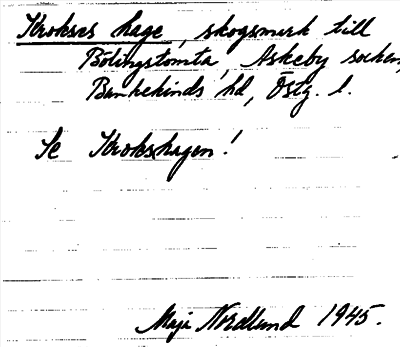 Krokses hage, skogsmark till
Bölingstomta, Askeby socken,
Bankekinds hd, Östg. l.
Se Krokshagen!
Maja Nordlund 1945.